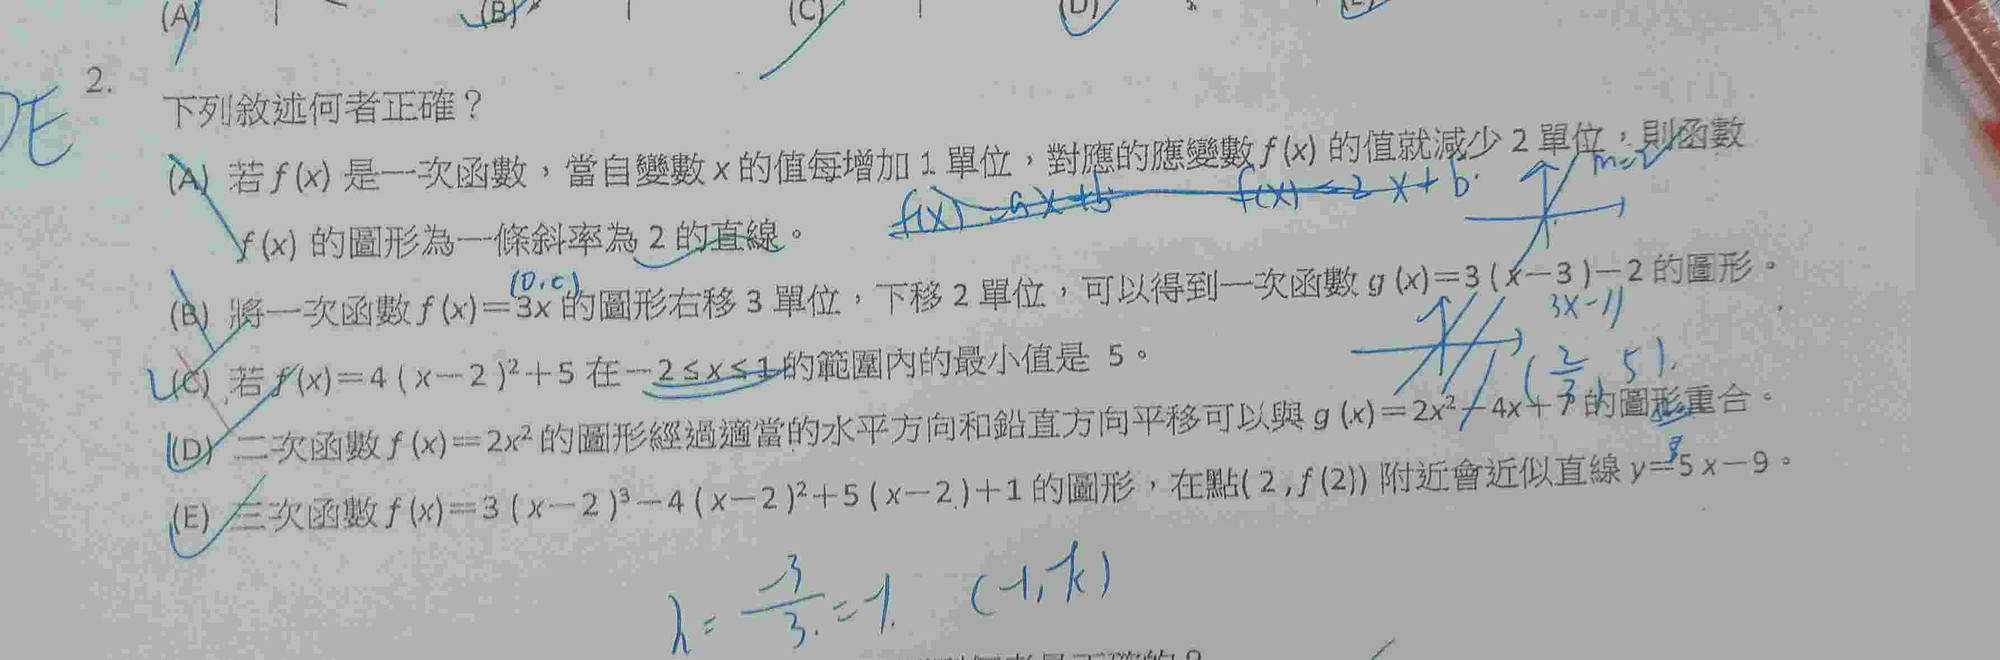 (A) (B) (C) (D) (E)
DE
2.
下列敘述何者正確？
(A) 若 f (x) 是一次函數，當自變數 x 的值每增加 1 單位，對應的應變數 f (x) 的值就減少 2 單位，則函數
m=2
f(x)=ax+b f(x)=2x+b
f (x) 的圖形為一條斜率為 2 的直線。
(0,0)
(B) 將一次函數 f (x)=3x 的圖形右移 3 單位，下移 2 單位，可以得到一次函數 g (x)=3 ( x-3 )-2 的圖形。
3x-11
(C) 若 f (x)=4 ( x-2 )²+5 在 -2≤x≤1 的範圍內的最小值是 5。
(2/3, 5).
(D) 二次函數 f (x)=2x² 的圖形經過適當的水平方向和鉛直方向平移可以與 g (x)=2x²-4x+7 的圖形重合。
(E) 三次函數 f (x)=3 ( x-2 )³-4 ( x-2 )²+5 ( x-2 )+1 的圖形，在點( 2 , f (2)) 附近會近似直線 y=5 x-9。
h= -3/3.=-1. (-1, k)